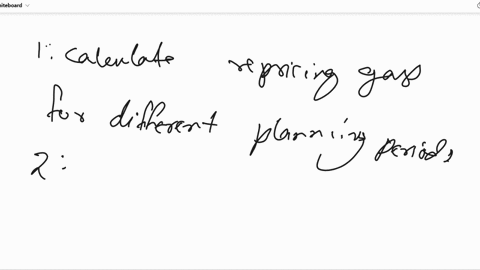 niteboard
1: calculate repricing gaps
for different planning periods
2: